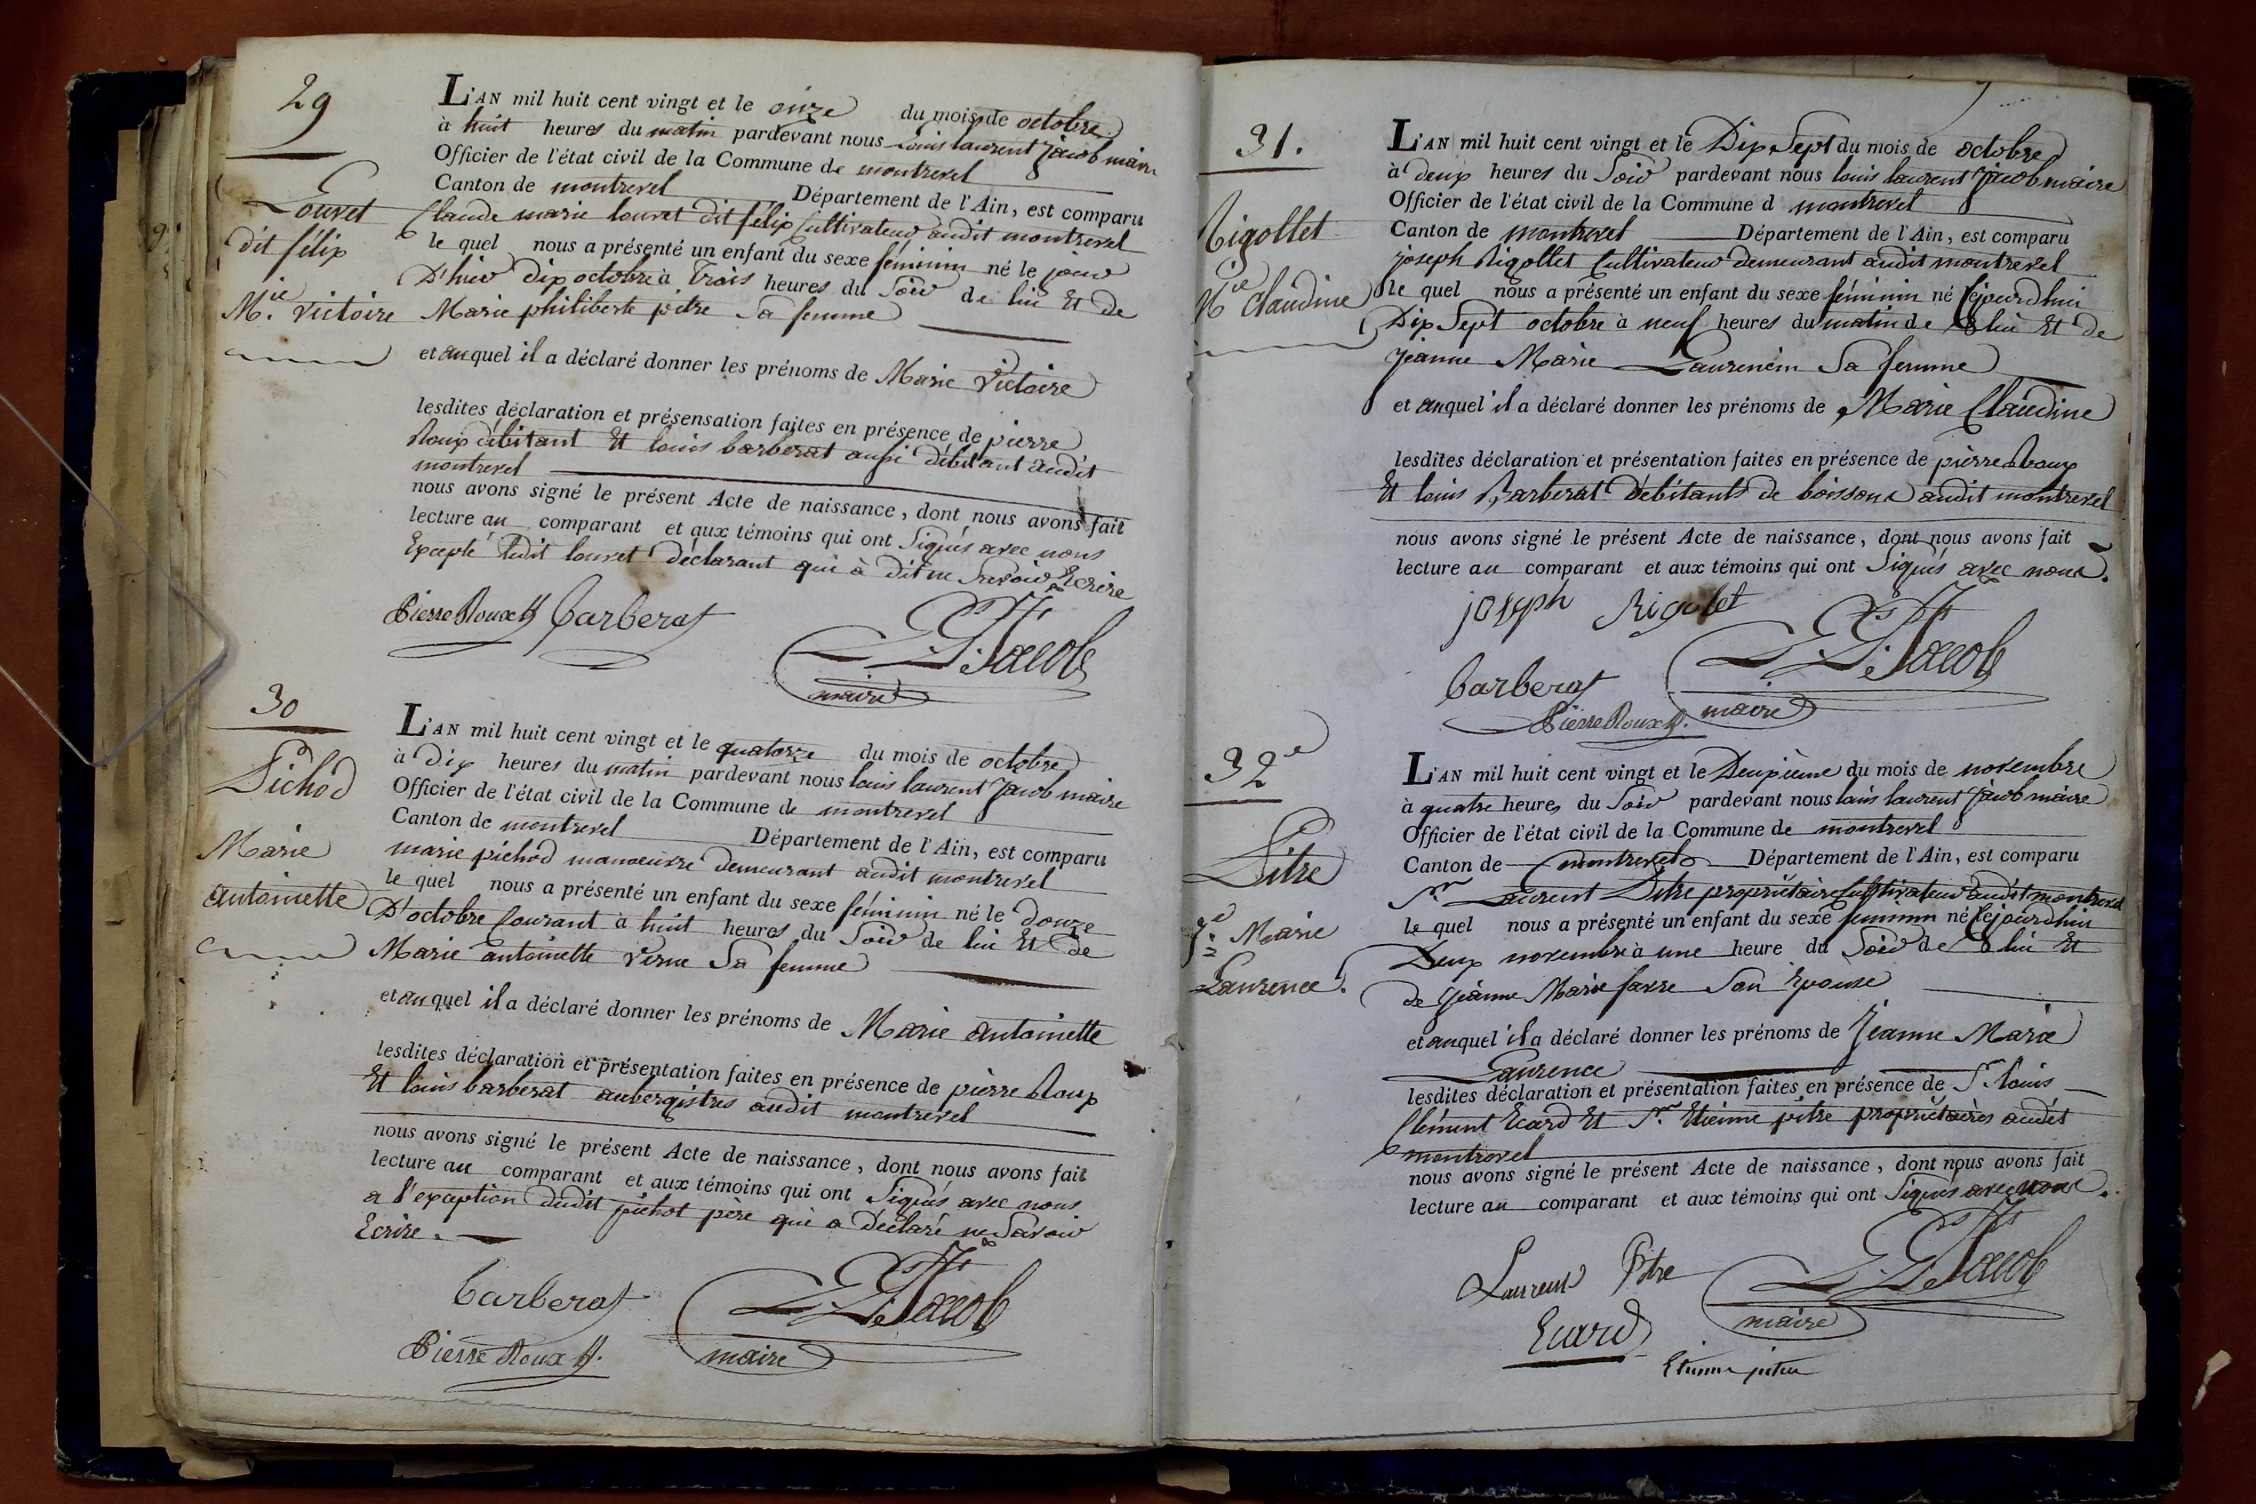 29
Louvet
dit félix
M.ie victoire
L'AN mil huit cent vingt et le onze du mois de octobre
à huit heures du matin pardevant nous Louis laurent jacob maire
Officier de l'état civil de la Commune de montrevel
Canton de montrevel Département de l'Ain, est comparu
Claude marie louvet dit félix Cultivateur audit montrevel
le quel nous a présenté un enfant du sexe féminin né le jour
D'hier dix octobre à trois heures du Soir de lui Et de
Marie philiberte pitre Sa femme
et auquel il a déclaré donner les prénoms de Marie Victoire
lesdites déclaration et présensation faites en présence de pierre
Roux débitant Et louis barberat aussi débitant audit
montrevel
nous avons signé le présent Acte de naissance, dont nous avons fait
lecture au comparant et aux témoins qui ont Signés avec nous
Excepté ledit louvet déclarant qui à dit ne Savoir Ecrire
Pierre Roux Barberat
L. L. Jacob
maire
30
Pichod
Marie
antoinette
L'AN mil huit cent vingt et le quatorze du mois de octobre
à Dix heures du matin pardevant nous louis laurent Jacob maire
Officier de l'état civil de la Commune de montrevel
Canton de montrevel Département de l'Ain, est comparu
marie pichod manoeuvre demeurant audit montrevel
le quel nous a présenté un enfant du sexe féminin né le douze
D'octobre Courant à huit heures du Soir de lui Et de
Marie antoinette verne Sa femme
et auquel il a déclaré donner les prénoms de Marie antoinette
lesdites déclaration et présentation faites en présence de pierre Roux
Et louis barberat aubergistres audit montrevel
nous avons signé le présent Acte de naissance, dont nous avons fait
lecture au comparant et aux témoins qui ont Signés avec nous
a l'exception dudit pichot père qui a déclaré ne Savoir
Ecrire.
Barberat
Pierre Roux
L. L. Jacob
maire
31.
Rigollet
M.ie Claudine
L'AN mil huit cent vingt et le Dix Sept du mois de octobre
à deux heures du Soir pardevant nous louis laurent Jacob maire
Officier de l'état civil de la Commune d montrevel
Canton de montrevel Département de l'Ain, est comparu
joseph Rigollet Cultivateur demeurant audit montrevel
le quel nous a présenté un enfant du sexe féminin né Cejourdhui
Dix Sept octobre à neuf heures du matin de lui Et de
jeanne Marie Laurencin Sa femme
et auquel il a déclaré donner les prénoms de Marie Claudine
lesdites déclaration et présentation faites en présence de pierre Roux
Et louis Barberat Débitants de boissons audit montrevel
nous avons signé le présent Acte de naissance, dont nous avons fait
lecture au comparant et aux témoins qui ont Signés avec nous.
joseph Rigolet
Barberat
Pierre Roux
L. L. Jacob
maire
32e
Pitre
J.e Marie
Laurence.
L'AN mil huit cent vingt et le Deuxième du mois de novembre
à quatre heures du Soir pardevant nous louis laurent Jacob maire
Officier de l'état civil de la Commune de montrevel
Canton de montrevel Département de l'Ain, est comparu
Sr. Laurent Pitre propriétaire Cultivateur audit montrevel
le quel nous a présenté un enfant du sexe féminin né Cejourdhui
Deux novembre à une heure du Soir de lui Et
de Jeanne Marie favre Son Epouse
et auquel il a déclaré donner les prénoms de Jeanne Marie
Laurence
lesdites déclaration et présentation faites en présence de Sr. louis
Clément Ecard Et Sr. Etienne pitre propriétaires audit
montrevel
nous avons signé le présent Acte de naissance, dont nous avons fait
lecture au comparant et aux témoins qui ont Signés avec nous.
Laurent Pitre
Ecard
L. L. Jacob
maire
Etienne pitre